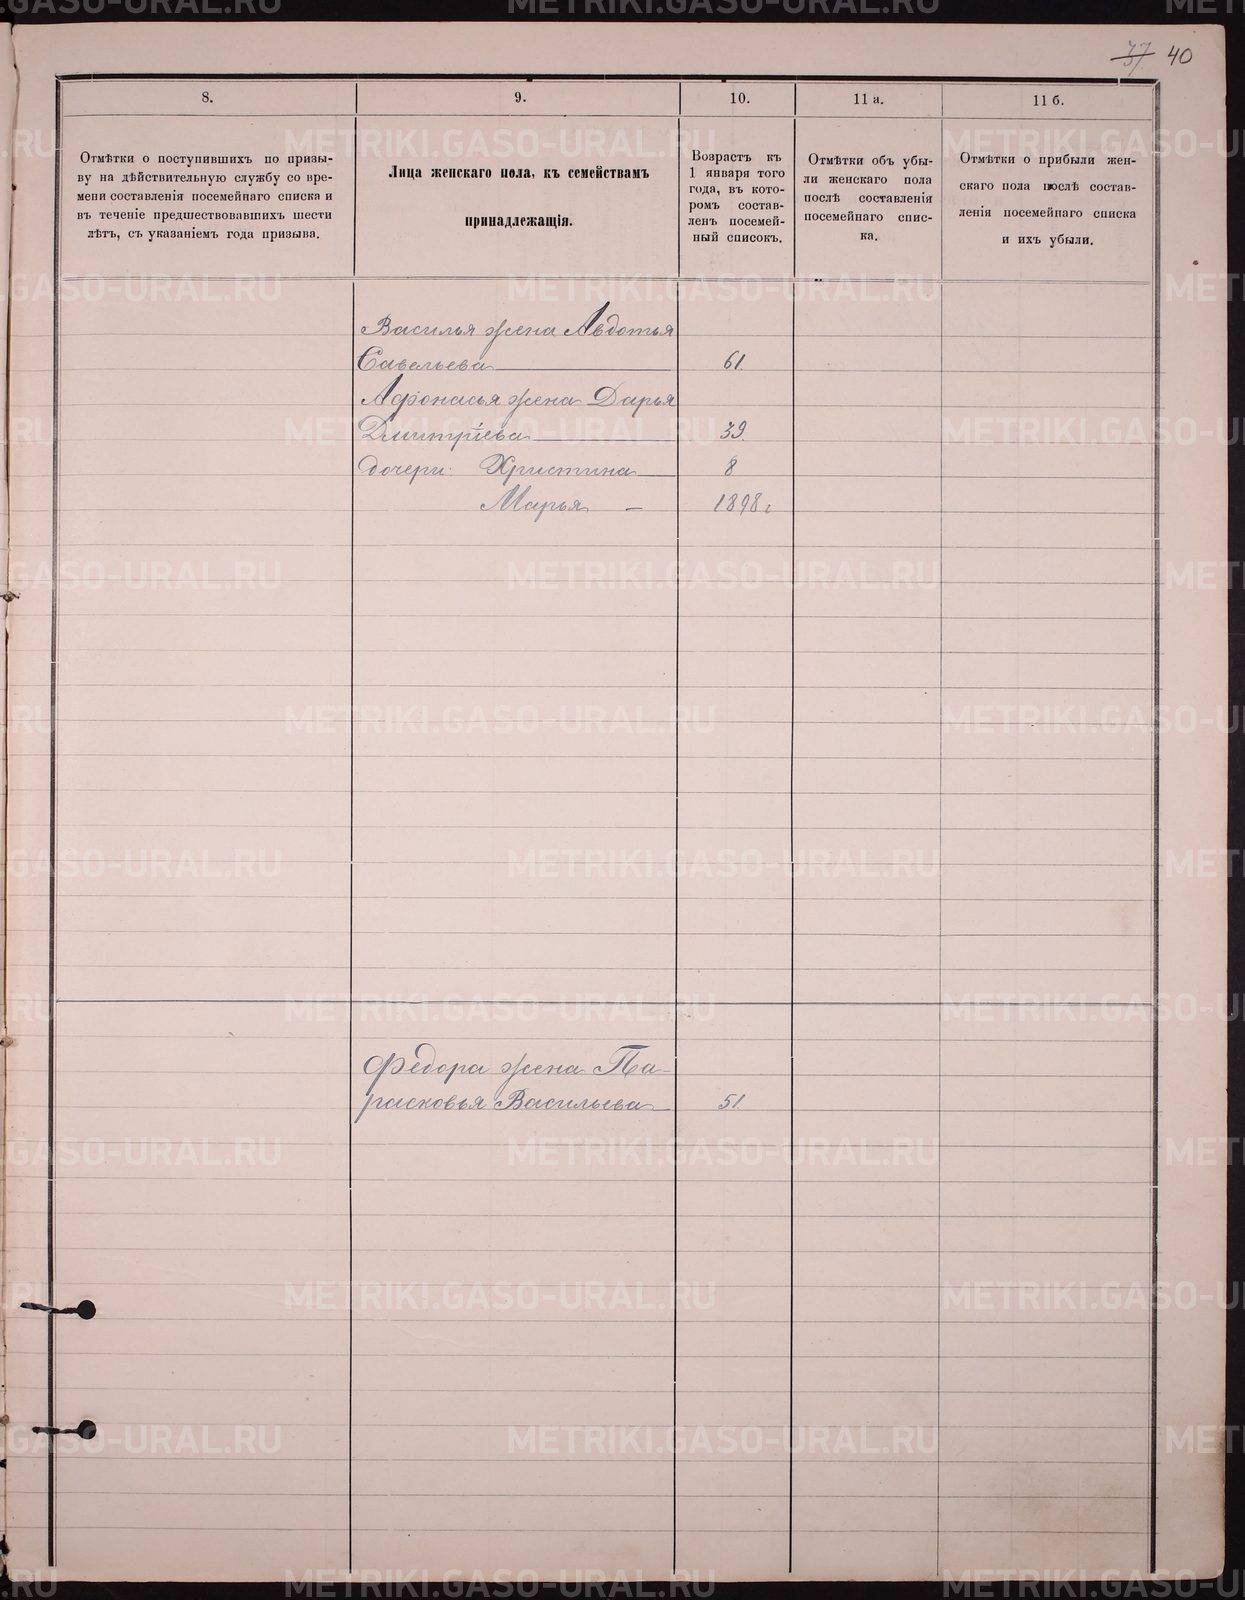 40
8.
9.
10.
11 а.
11 б.
Отмѣтки о поступившихъ по призы-
ву на дѣйствительную службу со вре-
мени составленія посемейнаго списка и
въ теченіе предшествовавшихъ шести
лѣтъ, съ указаніемъ года призыва.
Лица женскаго пола, къ семействамъ
принадлежащія.
Возрастъ къ
1 января того
года, въ кото-
ромъ состав-
ленъ посемей-
ный списокъ.
Отмѣтки объ убы-
ли женскаго пола
послѣ составленія
посемейнаго спис-
ка.
Отмѣтки о прибыли жен-
скаго пола послѣ состав-
ленія посемейнаго списка
и ихъ убыли.
Василья жена Авдотья
Савельева 61.
Афонасья жена Дарья
Дмитріева 39.
дочери: Христина 8
Марья — 1898 г
Федора жена Па-
расковья Васильева 51
METRIKI.GASO-URAL.RU